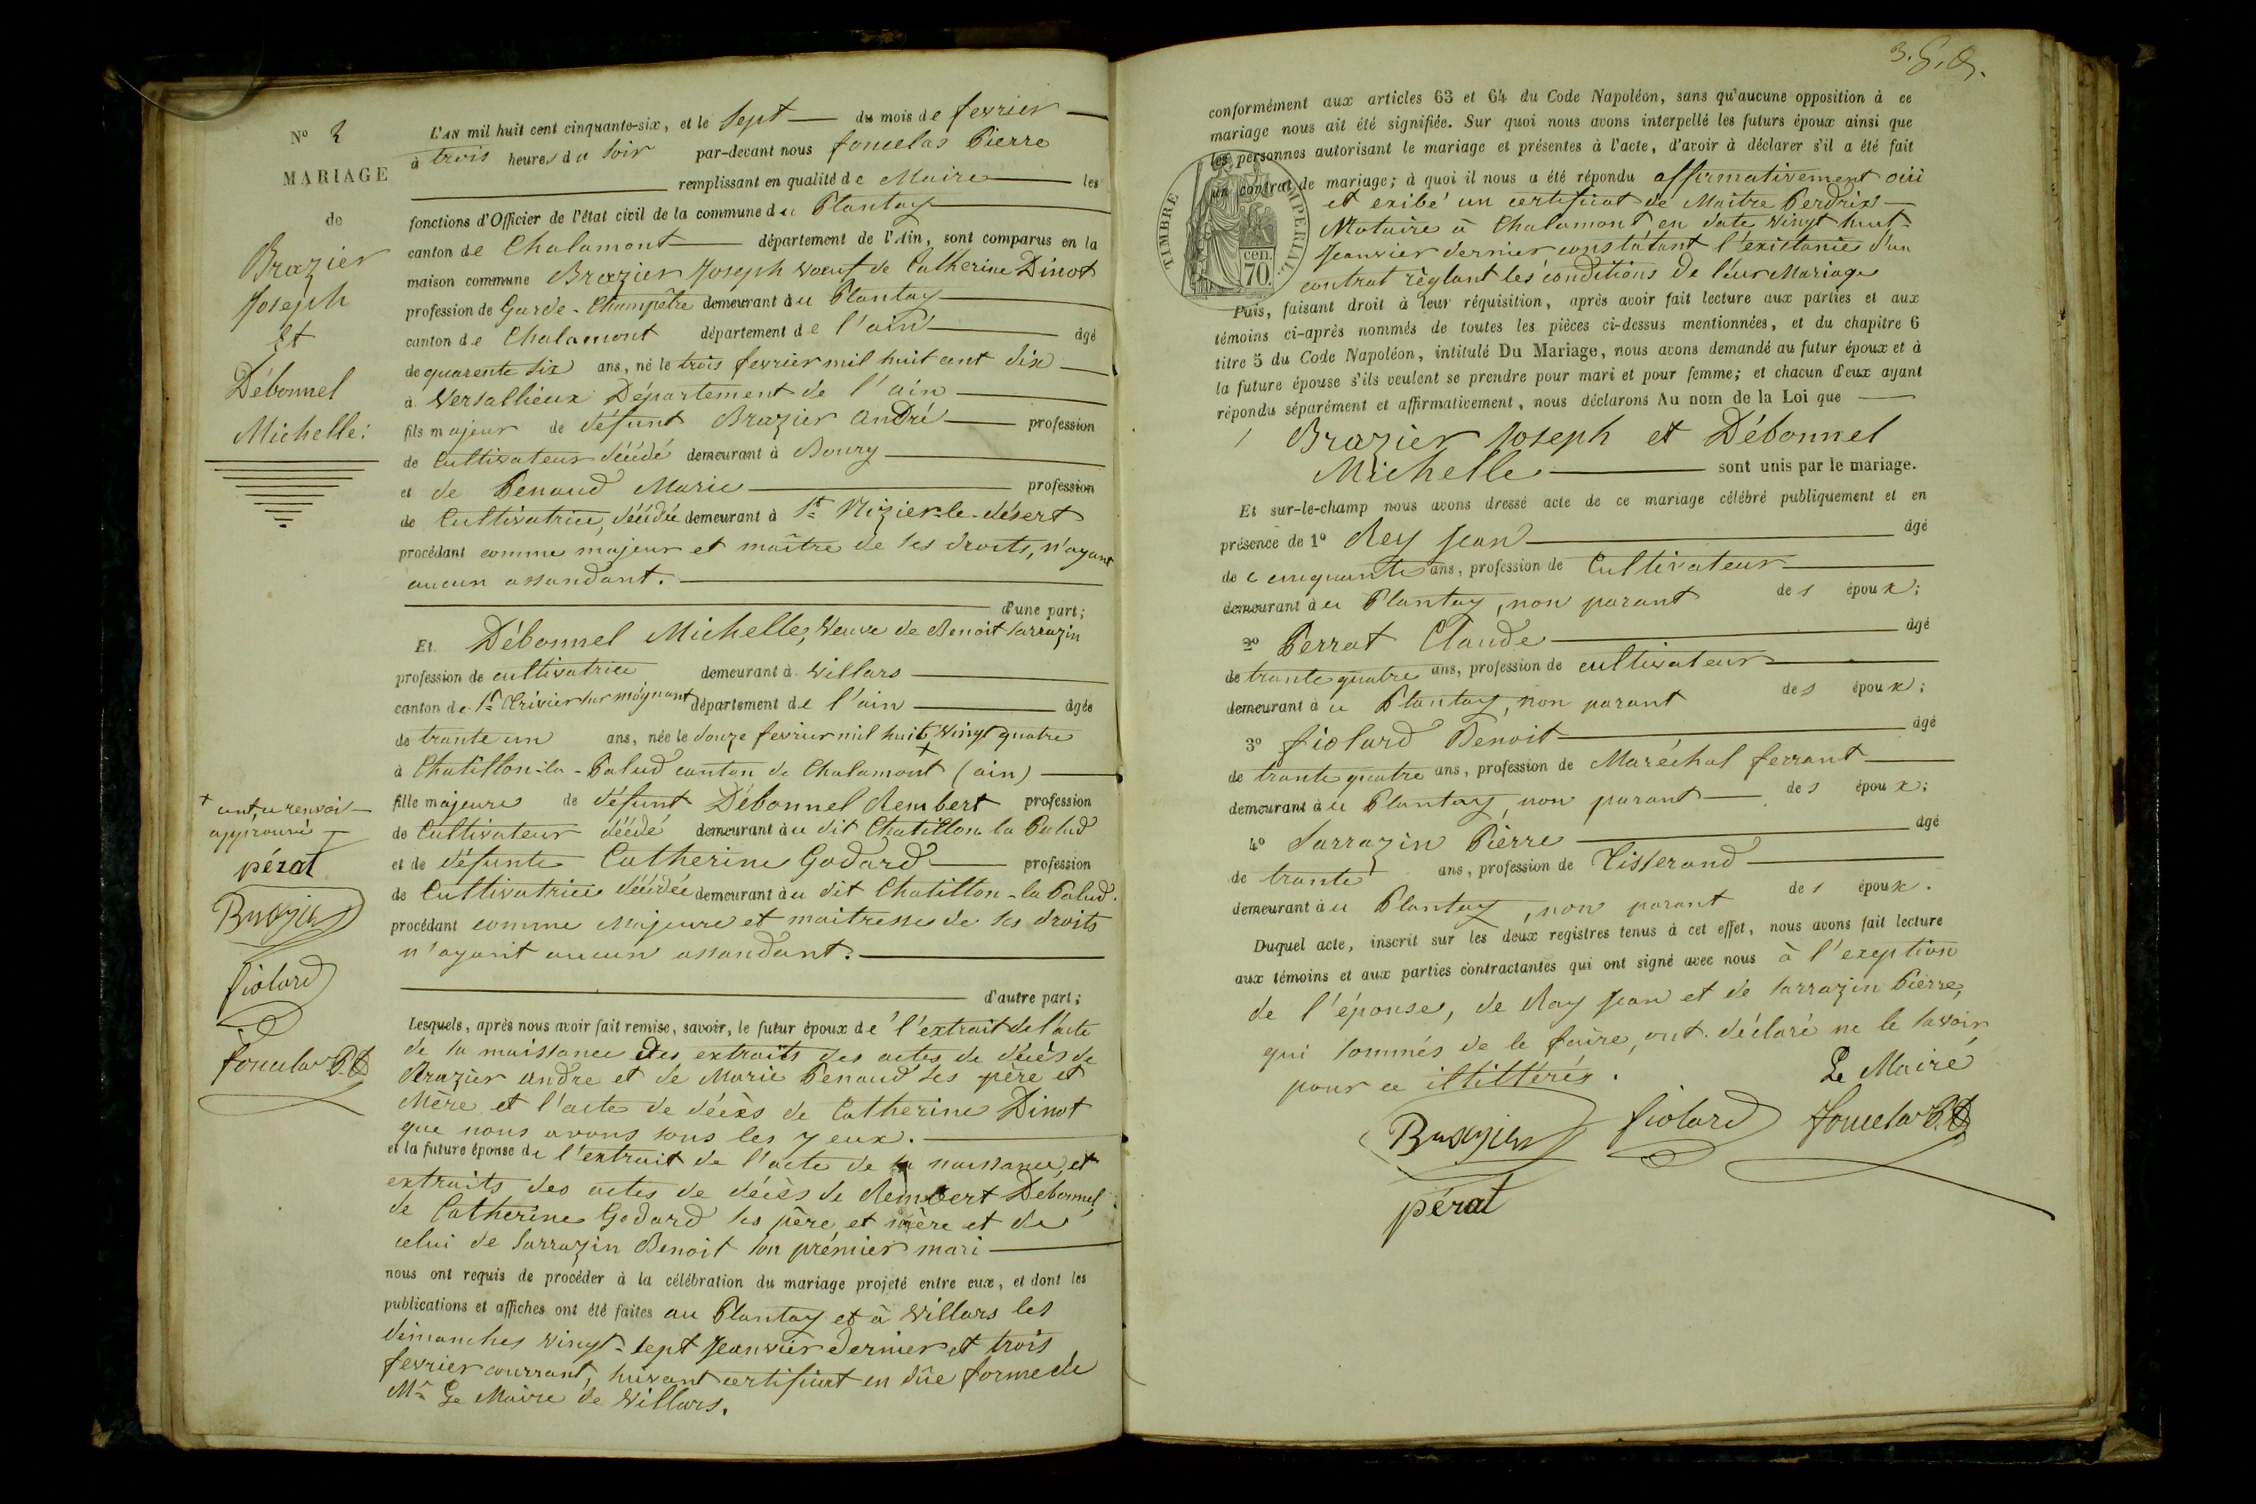 Nº 2
MARIAGE
de
Brazier
Joseph
Et
Débonnel
Michelle:
L'AN mil huit cent cinquante-six, et le Sept du mois de fevrier
à trois heures du Soir par-devant nous fonuelas Pierre
remplissant en qualité de Maire les
fonctions d'Officier de l'état civil de la commune du Plantay
canton de Chalamont département de l'Ain, sont comparus en la
maison commune Brazier Joseph voeuf de Catherine Dinot
profession de Garde-Champêtre demeurant au Plantay
canton de Chalamont département de l'ain âgé
de quarente six ans, né le trois fevrier mil huit cent dix
à Versallieux Département de l'ain
fils majeur de défunt Brazier André profession
de Cultivateur déédé demeurant à Bourg
et de Penaud Marie profession
de Cultivatrice, déédée demeurant à St Nizier-le-désert
procédant comme majeur et maître de ses droits, n'ayant
aucun assandant.
d'une part;
Et Débonnel Michelle, Veuve de Benoit Sarrazin
profession de cultivatrice demeurant à Villars
canton de St Trivier sur moignant département de l'ain âgée
de trante un ans, née le douze fevrier mil huit + Vingt quatre
à Chatillon-la-Palud canton de Chalamont (ain)
fille majeure de défunt Débonnel Rembert profession
de Cultivateur déédé demeurant au dit Chatillon la Palud
et de défunte Catherine Godard profession
de Cultivatrice déédée demeurant au dit Chatillon-la Palud.
procédant comme Majeure et maitresse de ses droits
n'ayant aucun assandant.
d'autre part;
+ cent, u renvoi
approuvé
pérat
Brazier
fiolard
fonuelas P.
Lesquels, après nous avoir fait remise, savoir, le futur époux de l'extrait de l'acte
de sa naissance des extraits des actes de décès de
Brazier andre et de Marie Penaud ses père et
Mère et l'acte de décès de Catherine Dinot
que nous avons sous les yeux.
et la future épouse de l'extrait de l'acte de sa naissance, et
extraits des actes de décès de Rembert Débonnel,
de Catherine Godard ses père et mère et de
celui de Sarrazin Benoit son prémier mari
nous ont requis de procéder à la célébration du mariage projeté entre eux, et dont les
publications et affiches ont été faites au Plantay et à Villars les
dimanches vingt-sept Jeanvier dernier et trois
fevrier courrant, suivant certificat en dûe forme de
Mr Le Maire de Villars.
conformément aux articles 63 et 64 du Code Napoléon, sans qu'aucune opposition à ce
mariage nous ait été signifiée. Sur quoi nous avons interpellé les futurs époux ainsi que
les personnes autorisant le mariage et présentes à l'acte, d'avoir à déclarer s'il a été fait
un contrat de mariage; à quoi il nous a été répondu affirmativement oui
et exibé un certificat de Maître Perdrix
Notaire à Chalamont en date vingt huit
Jeanvier dernier constatant l'existanie d'un
contrat règlant les conditions de leur Mariage
TIMBRE IMPERIAL.
cen.
70.
Puis, faisant droit à leur réquisition, après avoir fait lecture aux parties et aux
témoins ci-après nommés de toutes les pièces ci-dessus mentionnées, et du chapitre 6
titre 5 du Code Napoléon, intitulé Du Mariage, nous avons demandé au futur époux et à
la future épouse s'ils veulent se prendre pour mari et pour femme; et chacun d'eux ayant
répondu séparément et affirmativement, nous déclarons Au nom de la Loi que
Brazier Joseph et Débonnel
Michelle sont unis par le mariage.
Et sur-le-champ nous avons dressé acte de ce mariage célébré publiquement et en
présence de 1º Rey Jean âgé
de cinquante ans, profession de Cultivateur
demeurant au Plantay, non parant des époux;
2º Perrat Claude âgé
de trante quatre ans, profession de cultivateur
demeurant au Plantay, non parant des époux;
3º fiolard Benoit âgé
de trante quatre ans, profession de Maréchal ferrant
demeurant au Plantay, non parant des époux;
4º Sarrazin Pièrre âgé
de trante ans, profession de Tisserand
demeurant au Plantay, non parant des époux.
Duquel acte, inscrit sur les deux registres tenus à cet effet, nous avons fait lecture
aux témoins et aux parties contractantes qui ont signé avec nous à l'exeption
de l'épouse, de Ray Jean et de Sarrazin Pièrre,
qui sommés de le faire, ont déclaré ne le savoir
pour ce illittérés.
Le Maire
Brazier fiolard fonuelas P.
pérat